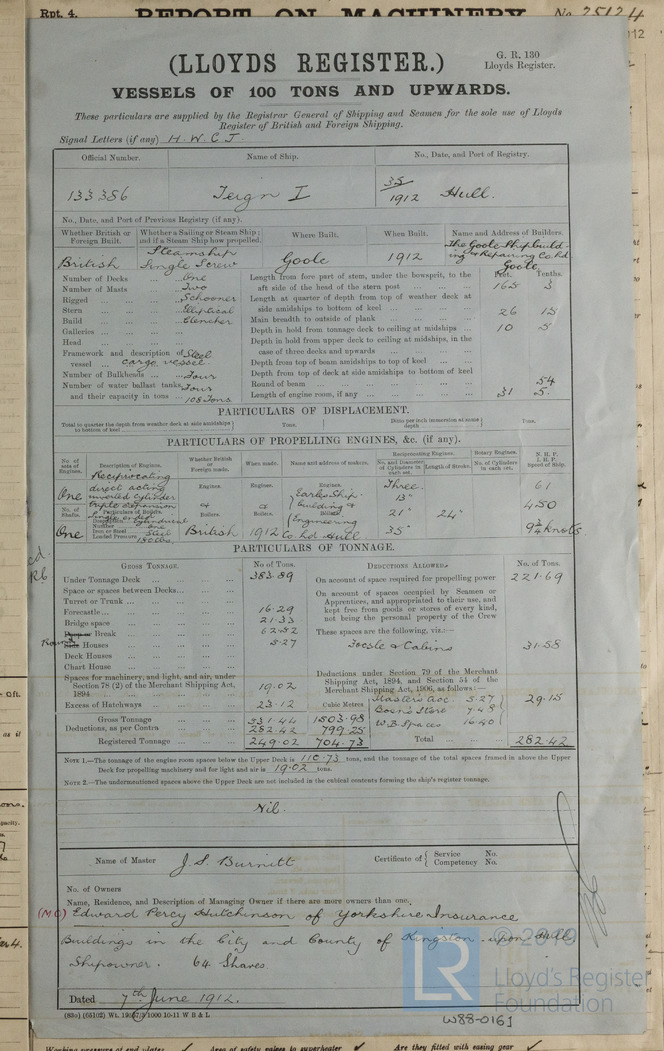 Rpt. 4. REPORT ON MACHINERY No. 25124
(LLOYDS REGISTER.)
G. R. 130
Lloyds Register.
VESSELS OF 100 TONS AND UPWARDS.
These particulars are supplied by the Registrar General of Shipping and Seamen for the sole use of Lloyds
Register of British and Foreign Shipping.
Signal Letters (if any) H.W.C.J.
Official Number. Name of Ship. No., Date, and Port of Registry.
133386 Teign I 35/1912 Hull.
No., Date, and Port of Previous Registry (if any).
Whether British or Foreign Built. Whether a Sailing or Steam Ship; and if a Steam Ship how propelled. Where Built. When Built. Name and Address of Builders.
British Steamship Single Screw Goole 1912 The Goole Shipbuilding & Repairing Co. Ld Goole
Feet. Tenths.
Number of Decks ... One
Number of Masts ... Two
Rigged ... Schooner
Stern ... Elliptical
Build ... Clencher
Galleries ...
Head ...
Framework and description of vessel ... Steel cargo vessel.
Number of Bulkheads ... Four
Number of water ballast tanks, and their capacity in tons ... Four 108 Tons
Length from fore part of stem, under the bowsprit, to the aft side of the head of the stern post ... 165 3
Length at quarter of depth from top of weather deck at side amidships to bottom of keel ...
Main breadth to outside of plank ... 26 15
Depth in hold from tonnage deck to ceiling at midships ... 10 5
Depth in hold from upper deck to ceiling at midships, in the case of three decks and upwards ...
Depth from top of beam amidships to top of keel ...
Depth from top of deck at side amidships to bottom of keel
Round of beam ... 54
Length of engine room, if any ... 31 5
PARTICULARS OF DISPLACEMENT.
Total to quarter the depth from weather deck at side amidships to bottom of keel Tons. Ditto per inch immersion at same depth Tons.
PARTICULARS OF PROPELLING ENGINES, &c. (if any).
No. of sets of Engines. Description of Engines. Whether British or Foreign made. When made. Name and address of makers. Reciprocating Engines. Rotary Engines. N. H. P.
No. and Diameter of Cylinders in each set. Length of Stroke. No. of Cylinders in each set. I. H. P. Speed of Ship.
One Reciprocating direct acting inverted cylinder triple expansion
Engines. Engines. Engines.
Three 13" 21" 35" 24" 61 450 9¾ knots
No. of Shafts. Particulars of Boilers.
One Single ended
Description Cylindrical
Number One
Iron or Steel Steel
Loaded Pressure 180 lbs.
Boilers. Boilers. Boilers.
British 1912 Earles Shipbuilding & Engineering Co. Ld Hull
PARTICULARS OF TONNAGE.
GROSS TONNAGE. No. of Tons. DEDUCTIONS ALLOWED. No. of Tons.
Under Tonnage Deck ... 383.89
Space or spaces between Decks ...
Turret or Trunk ...
Forecastle ... 16.29
Bridge space ... 21.33
Poop or Break ... 62.52
Round Side Houses ... 5.27
Deck Houses ...
Chart House ...
Spaces for machinery, and light, and air, under Section 78 (2) of the Merchant Shipping Act, 1894 ... 19.02
Excess of Hatchways ... 23.12 Cubic Metres
Gross Tonnage ... 531.44 1503.98
Deductions, as per Contra ... 282.42 799.25
Registered Tonnage ... 249.02 704.73
On account of space required for propelling power 221.69
On account of spaces occupied by Seamen or Apprentices, and appropriated to their use, and kept free from goods or stores of every kind, not being the personal property of the Crew
These spaces are the following, viz.:—
Focsle & Cabins 31.58
Deductions under Section 79 of the Merchant Shipping Act, 1894, and Section 54 of the Merchant Shipping Act, 1906, as follows:—
Masters Acc. 5.27
Bosns Store 7.48
W.B. Spaces 16.40
29.15
Total ... 282.42
NOTE 1.—The tonnage of the engine room spaces below the Upper Deck is 110.73 tons, and the tonnage of the total spaces framed in above the Upper
Deck for propelling machinery and for light and air is 19.02 tons.
NOTE 2.—The undermentioned spaces above the Upper Deck are not included in the cubical contents forming the ship's register tonnage.
Nil.
Name of Master J. S. Burnitt Certificate of Service No. Competency No.
No. of Owners
Name, Residence, and Description of Managing Owner if there are more owners than one.
(MO) Edward Percy Hutchinson of Yorkshire Insurance
Buildings in the City and County of Kingston-upon-Hull
Shipowner. 64 Shares
Dated 7th June 1912.
LR Lloyd's Register Foundation
W88-0161
Working pressure of end plates Area of safety valves to superheater Are they fitted with easing gear